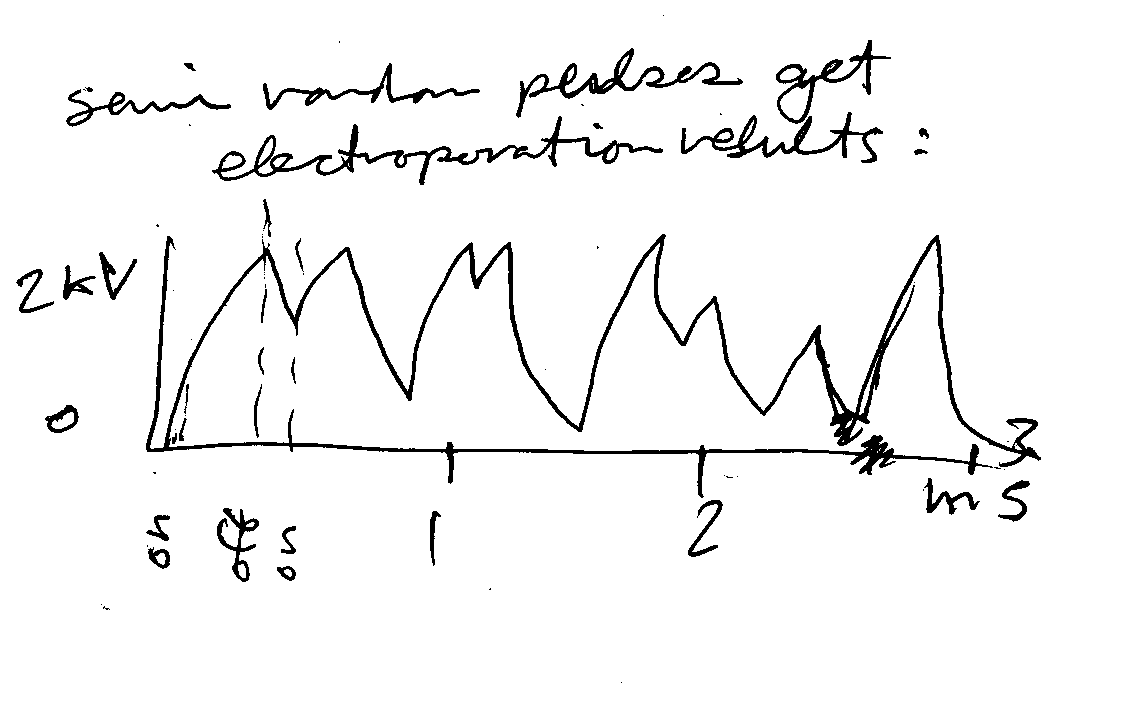 semi random pulses get
electroporation results:
2kV
0
3
ms
1
2